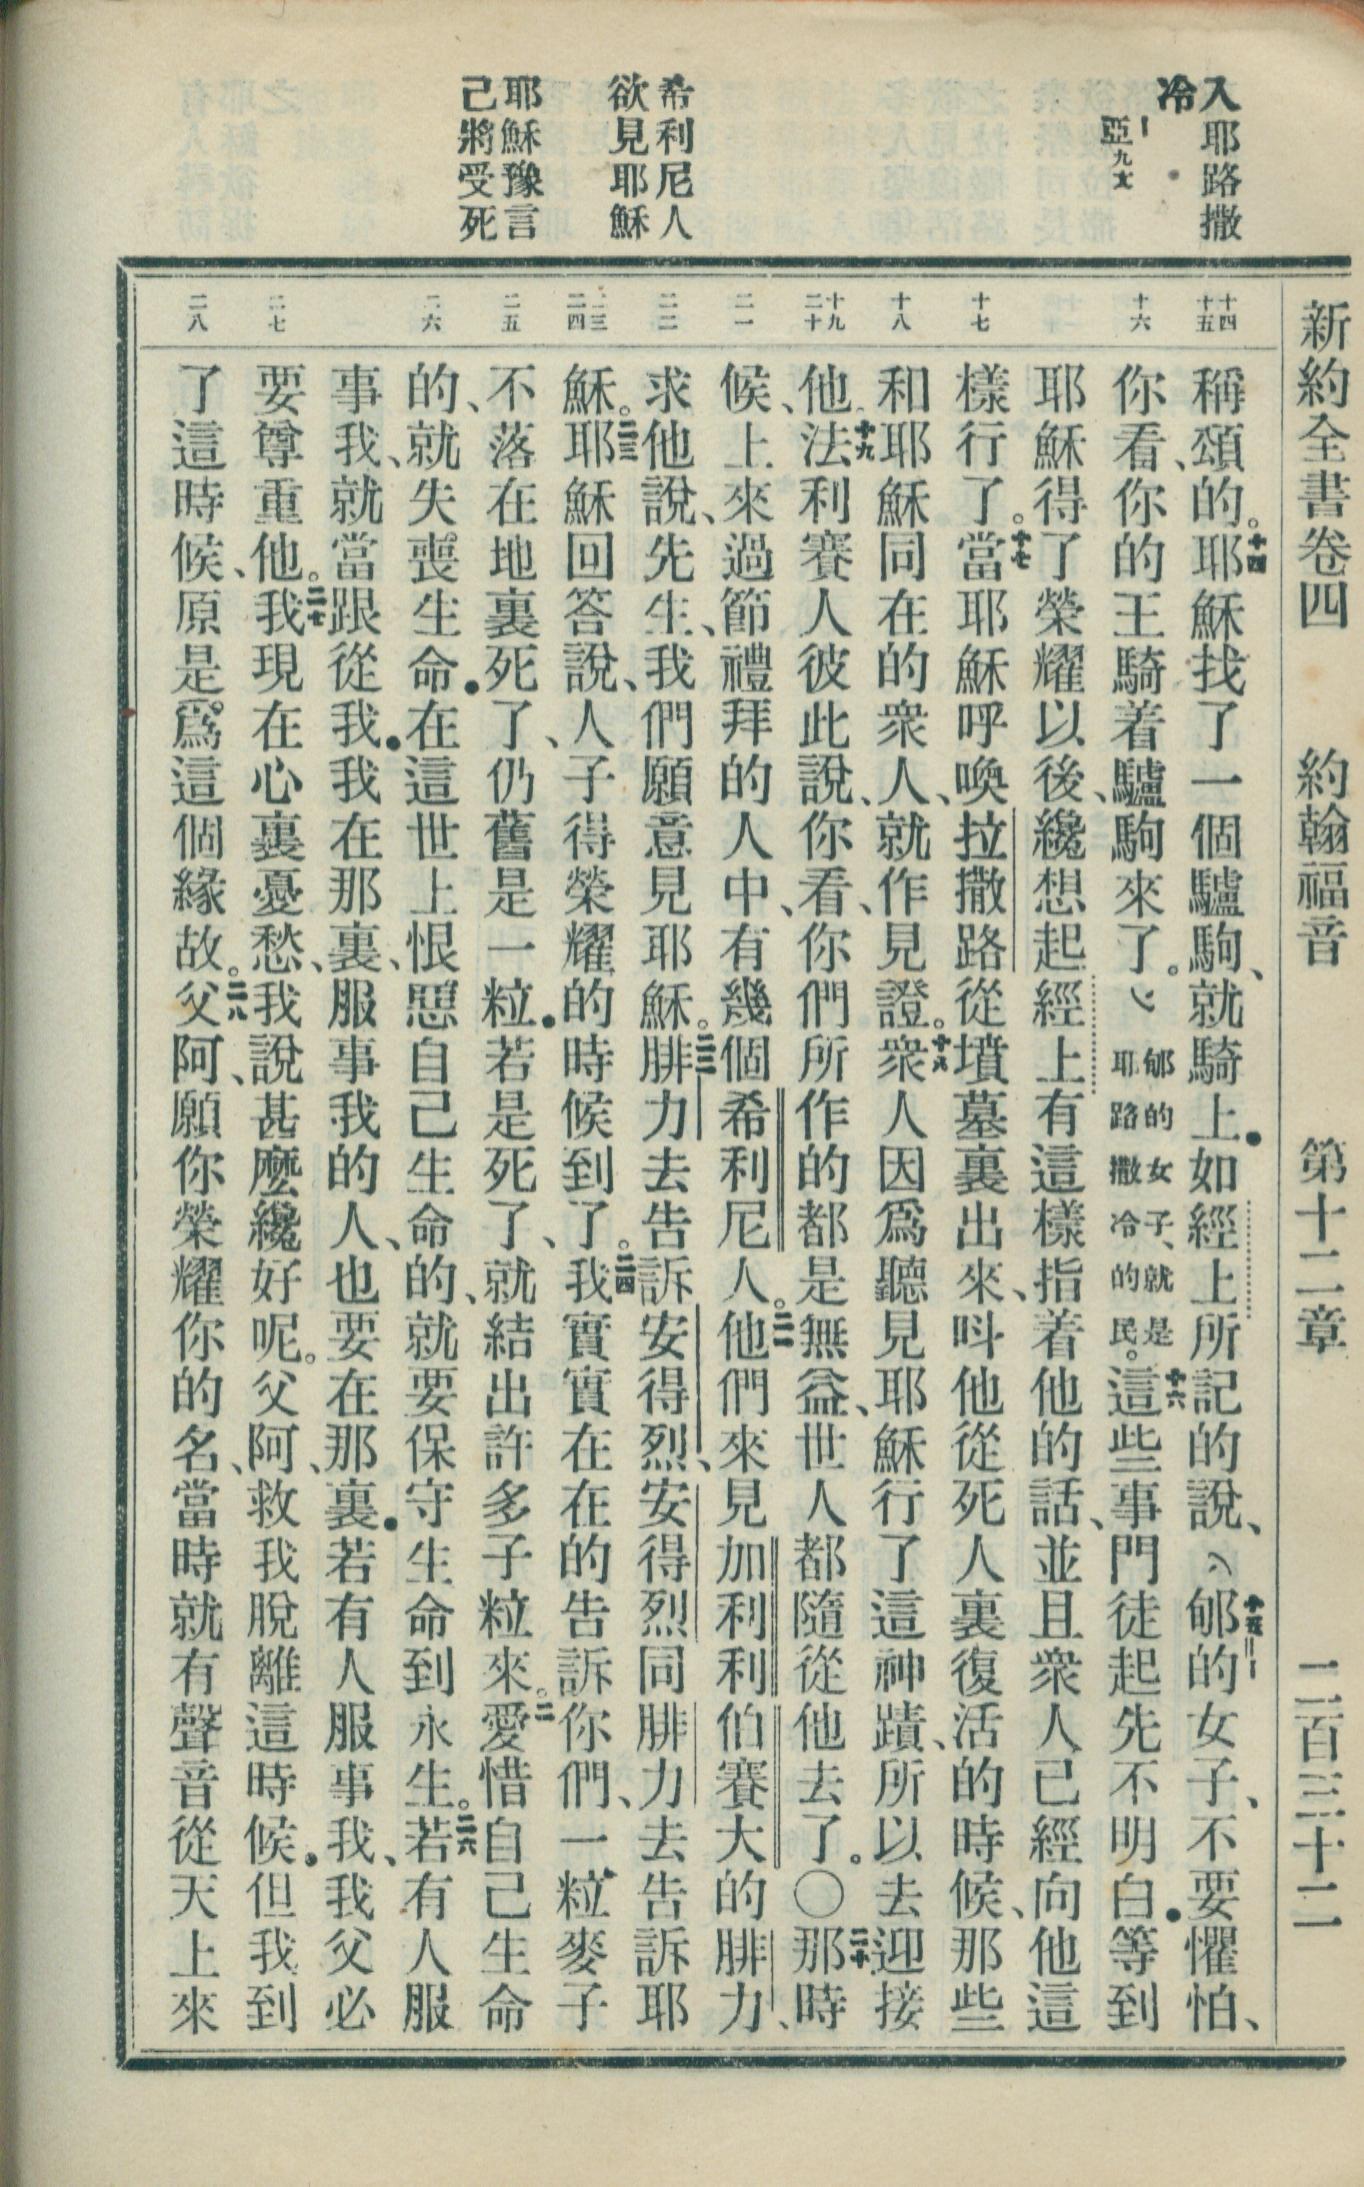 新約全書卷四　約翰福音　第十二章　二百三十二
入耶路撒
冷
亞九九
希利尼人
欲見耶穌
耶穌豫言
己將受死
十四
十五
十六
十七
十八
十九
二十
二一
二二
二三
二四
二五
二六
二七
二八
稱頌的。十四耶穌找了一個驢駒、就騎上●如經上所記的說、十五郇的女子、不要懼怕、
你看、你的王騎着驢駒來了。郇的女子、就是耶路撒冷的民。十六這些事門徒起先不明白●等到
耶穌得了榮耀以後、纔想起經上有這樣指着他的話、並且衆人已經向他這
樣行了。十七當耶穌呼喚拉撒路從墳墓裏出來、呌他從死人裏復活的時候、那些
和耶穌同在的衆人、就作見證。十八衆人因爲聽見耶穌行了這神蹟、所以去迎接
他、十九法利賽人彼此說、你看、你們所作的都是無益、世人都隨從他去了。〇二十那時
候、上來過節禮拜的人中、有幾個希利尼人。二一他們來見加利利伯賽大的腓力、
求他說、先生、我們願意見耶穌。二二腓力去告訴安得烈、安得烈同腓力去告訴耶
穌。二三耶穌回答說、人子得榮耀的時候到了。二四我實實在在的告訴你們、一粒麥子
不落在地裏死了、仍舊是一粒●若是死了、就結出許多子粒來。二愛惜自己生命
的、就失喪生命●在這世上恨惡自己生命的、就要保守生命到永生。二六若有人服
事我、就當跟從我●我在那裏、服事我的人、也要在那裏●若有人服事我、我父必
要尊重他。二七我現在心裏憂愁、我說甚麽纔好呢。父阿、救我脫離這時候●但我到
了這時候、原是爲這個緣故。二八父阿、願你榮耀你的名、當時就有聲音從天上來